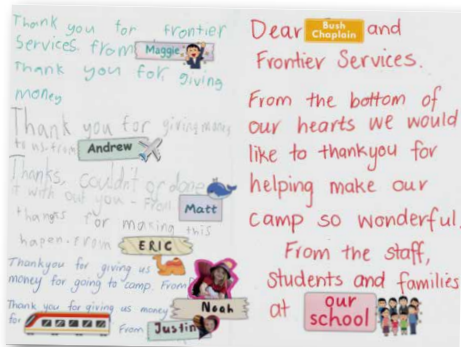 Thank you for frontier
Services from Maggie
Thank you for giving
money
Thank you for giving money
to us from Andrew
Thanks, couldnt of done
it with out you - From Matt
thanges for making this
hapen. From ERIC
Thankyou for giving us
money for going to camp. From Noah
Thank you for giving us money
for
From Justin
Dear Bush Chaplain and
Frontier Services.
From the bottom of
our hearts we would
like to thankyou for
helping make our
camp so wonderful.
From the staff,
Students and families
at our school